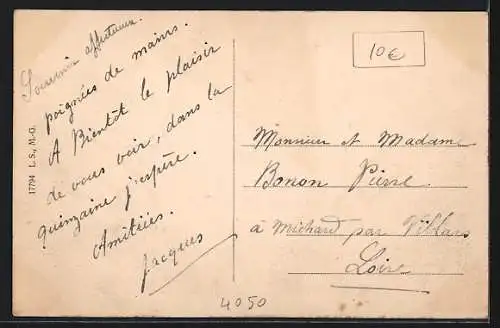 Souvenir affectueux.
poignées de mains.
A Bientôt le plaisir
de vous voir, dans la
quinzaine j'espère.
Amitiées.
Jacques
17794 L. S., M.-G.
10€
Monsieur et Madame
Bonon Pierre
à Michard par Villars
Loire
4050